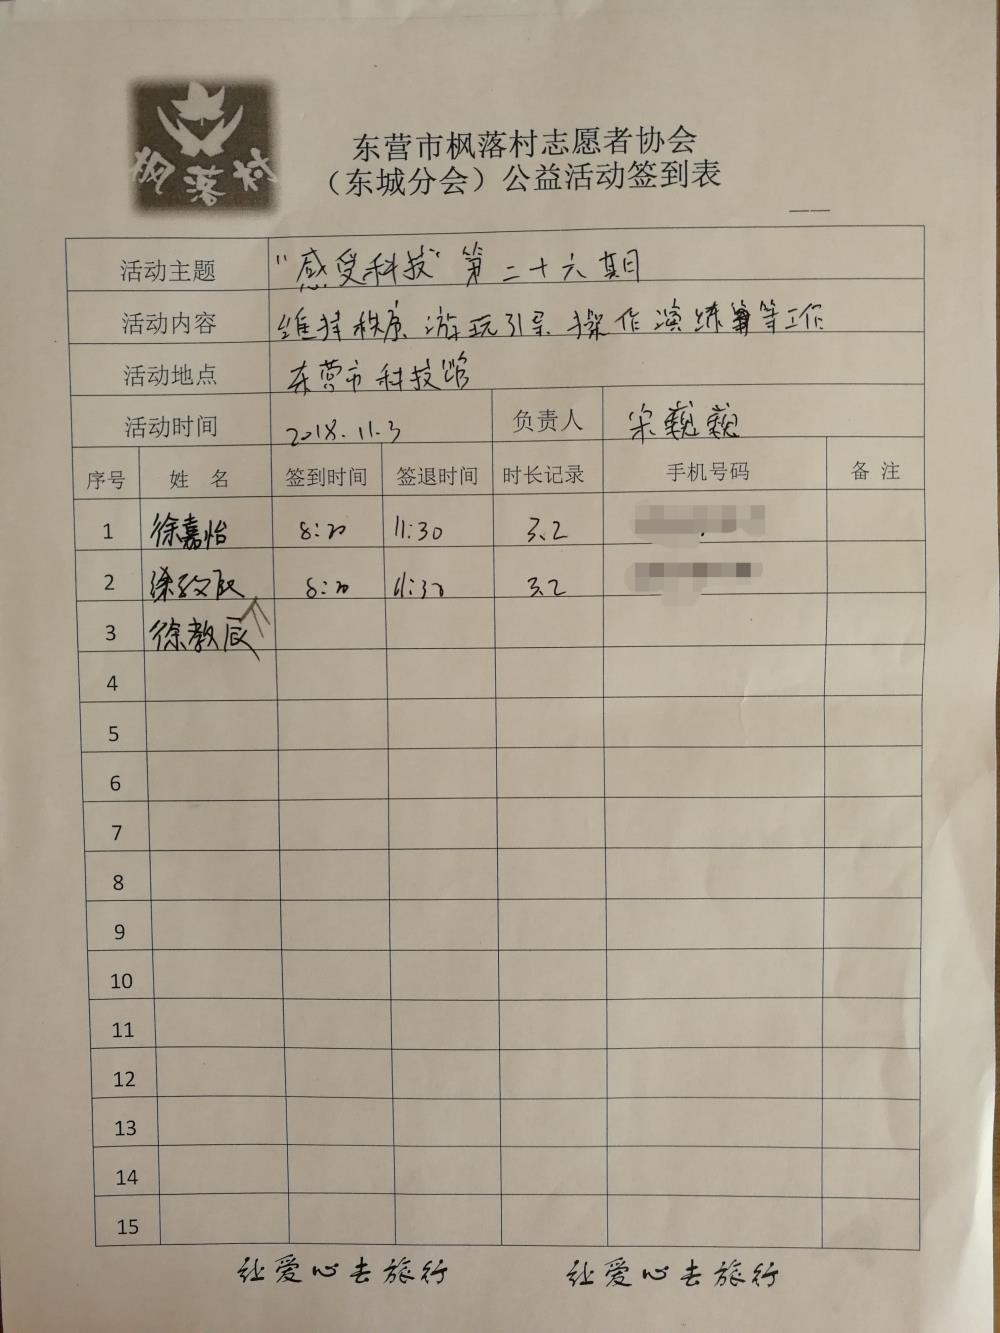 枫落村
东营市枫落村志愿者协会
（东城分会）公益活动签到表
活动主题 “感受科技”第二十六期
活动内容 维持秩序 游玩引导 操作演练等工作
活动地点 东营市科技馆
活动时间 2018.11.3 负责人 宋巍巍
序号 姓 名 签到时间 签退时间 时长记录 手机号码 备 注
1 徐嘉怡 8:20 11:30 3.2
2 8:20 11:30 3.2
3 徐教辰
4
5
6
7
8
9
10
11
12
13
14
15
让爱心去旅行 让爱心去旅行